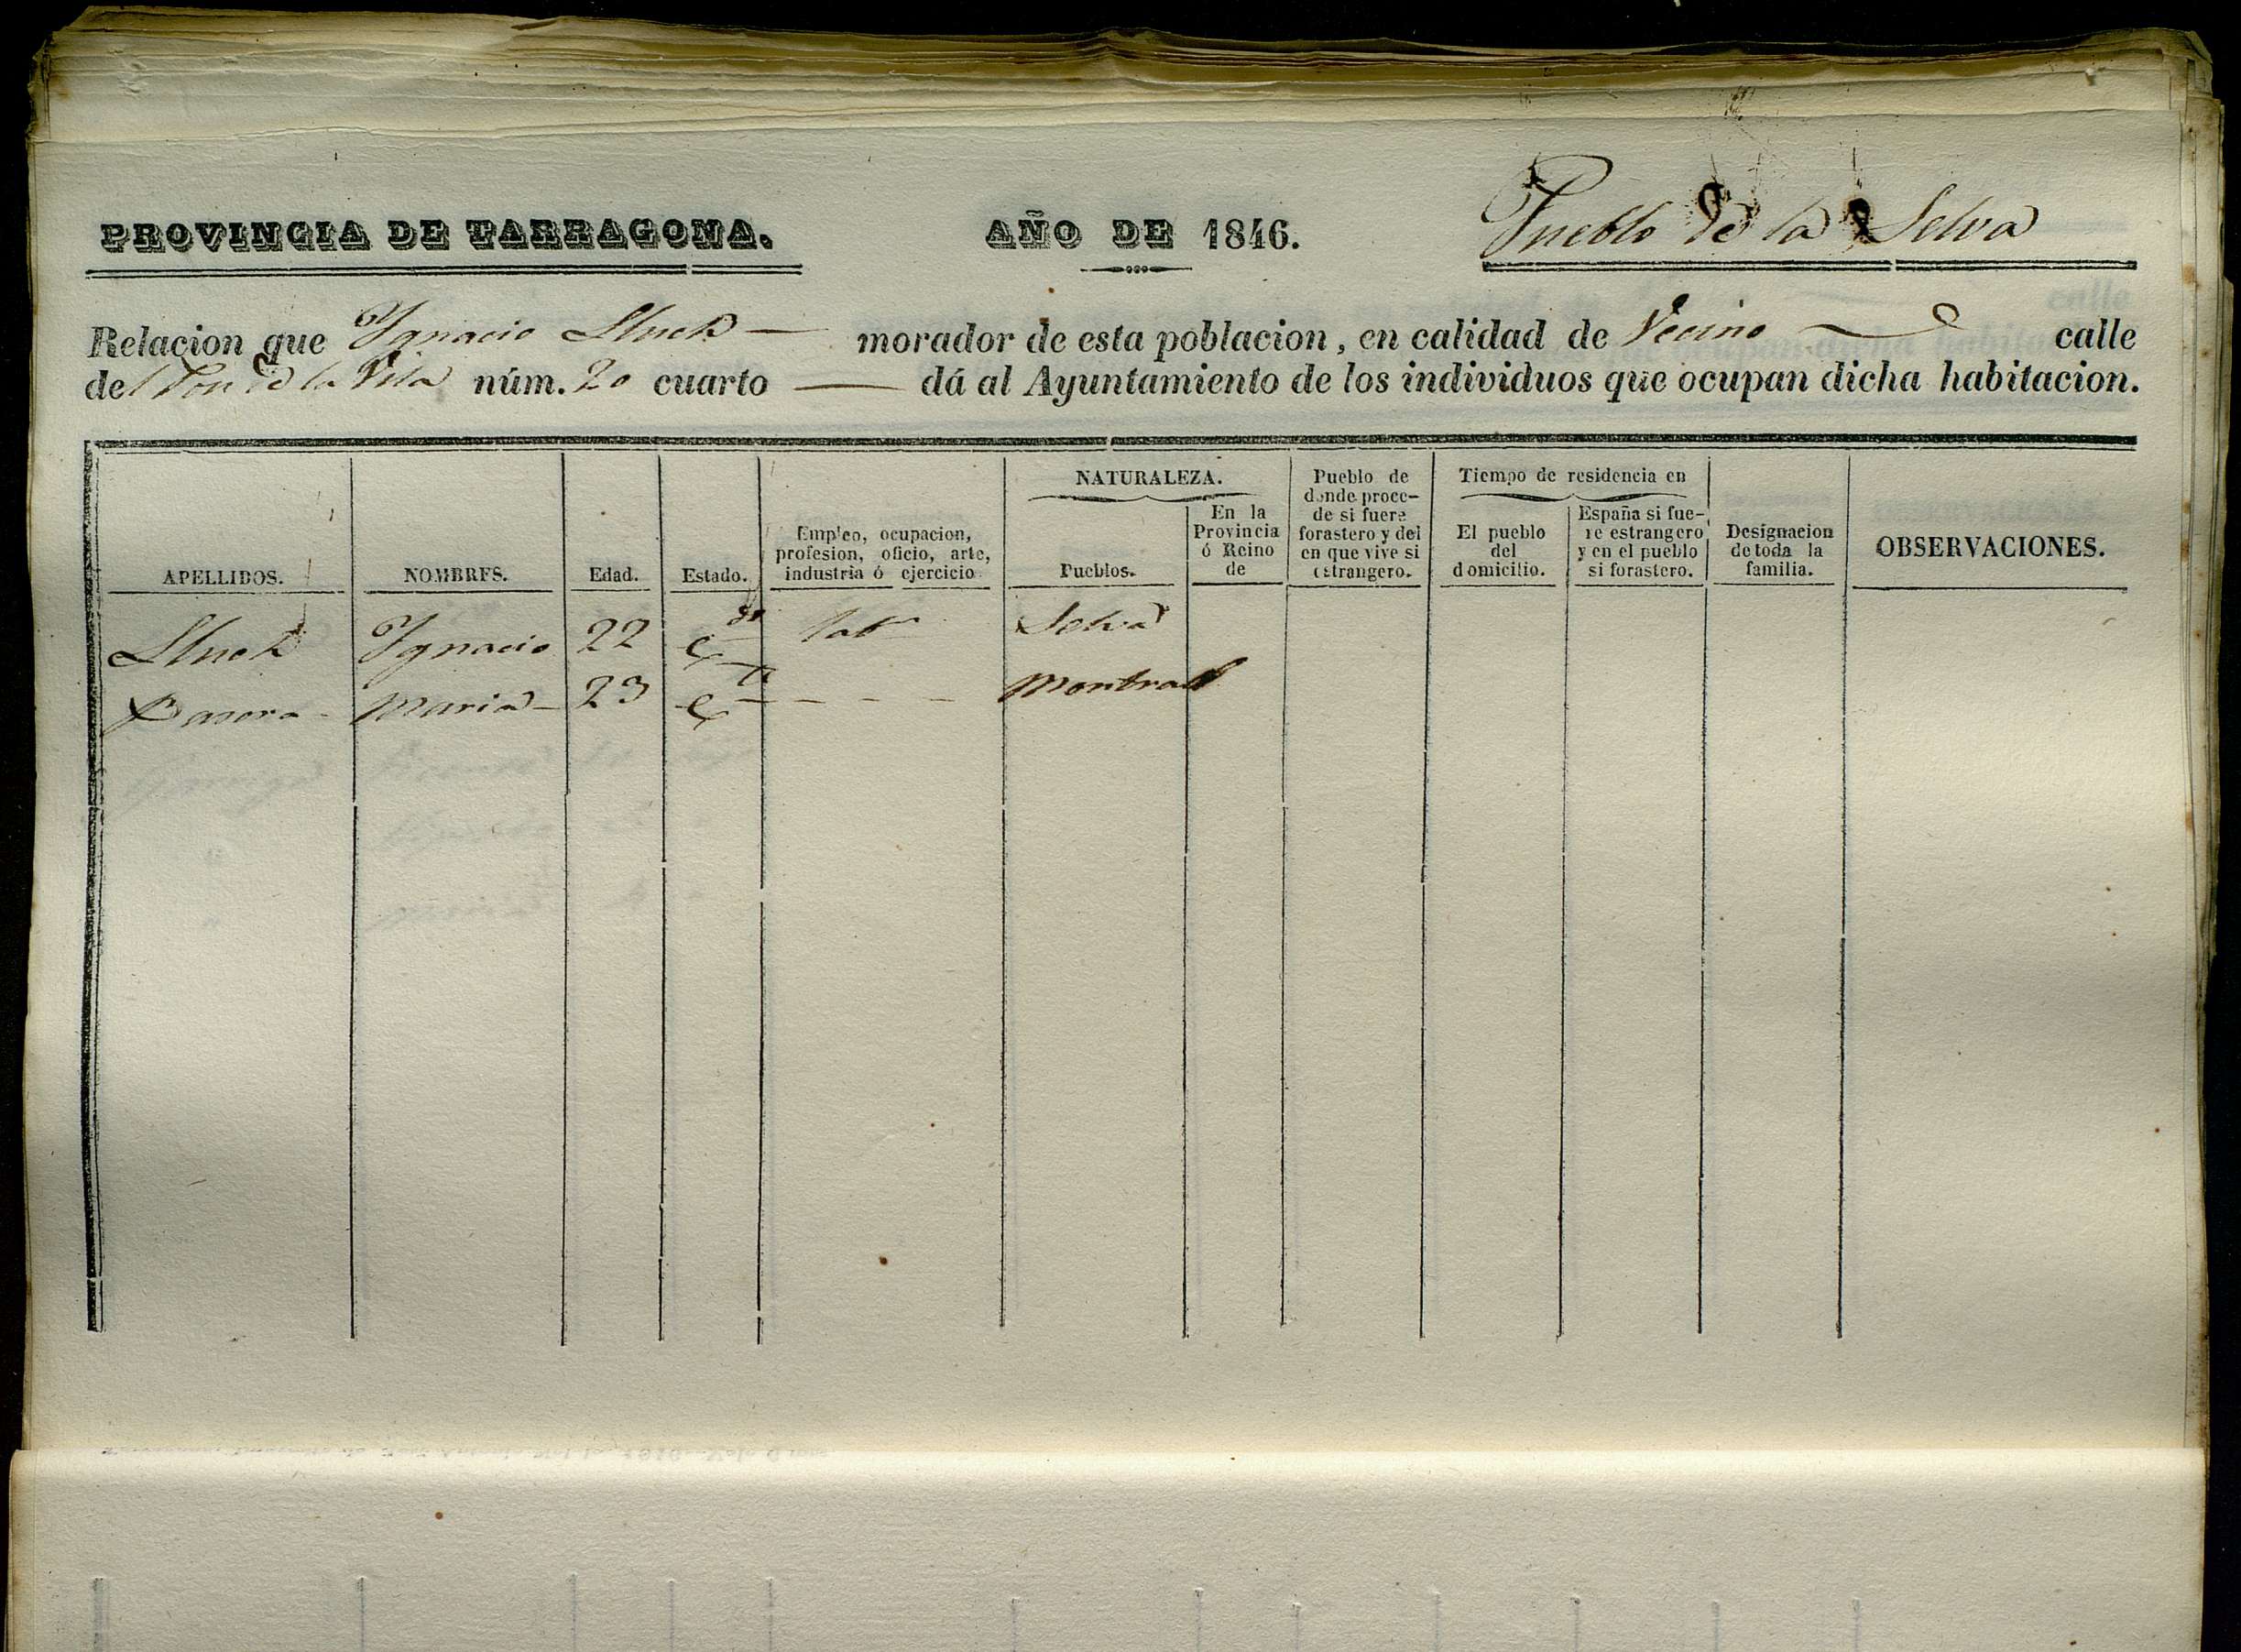 PROVINCIA DE TARRAGONA. AÑO DE 1846. Pueblo de la Selva
Relacion que Ygnacio Lluch — morador de esta poblacion, en calidad de Vecino — calle
del Pou de la Vila núm. 20 cuarto — dá al Ayuntamiento de los individuos que ocupan dicha habitacion.
NATURALEZA.
APELLIDOS.
NOMBRES.
Edad.
Estado.
Empleo, ocupacion,
profesion, oficio, arte,
industria ó ejercicio.
Pueblos.
En la
Provincia
ó Reino
de
Pueblo de
donde proce-
de si fuere
forastero y del
en que vive si
estrangero.
Tiempo de residencia en
El pueblo
del
domicilio.
España si fue-
re estrangero
y en el pueblo
si forastero.
Designacion
de toda la
familia.
OBSERVACIONES.
Lluch Ygnacio 22 C.do labr Selva
Basora - Maria - 23 C.da - - - - Montral